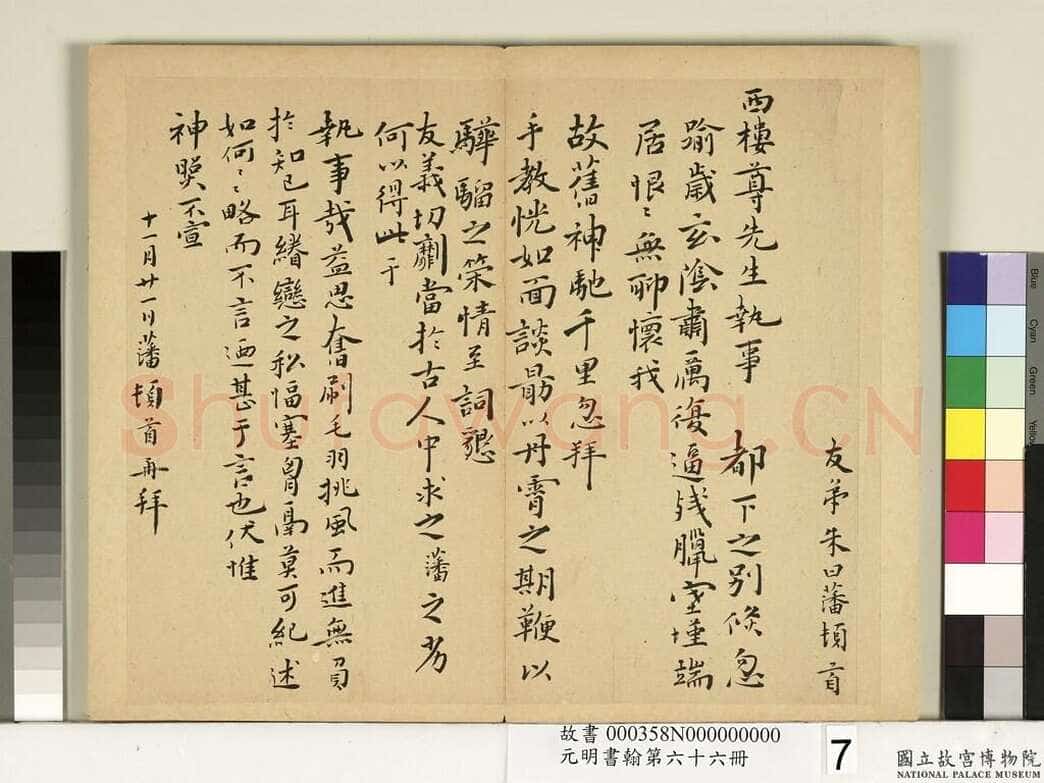 友弟朱曰藩頓首
西樓尊先生執事 都下之別倏忽
踰歲玄陰肅厲復逼殘臘室堇端
居恨〻無聊懷我
故舊神馳千里忽拜
手教恍如面談勗以丹霄之期鞭以
驊騮之策情至詞懇
友義切劘當於古人中求之藩之劣
何以得此于
執事哉益思奮刷毛羽挑風而進無負
於知己耳繾戀之私愊塞胷鬲莫可紀述
如何〻〻略而不言迺甚于言也伏惟
神照不宣
十一月廿一日藩頓首再拜
Shufawang.CN
故書 000358N000000000
元明書翰第六十六冊
7
國立故宮博物院
NATIONAL PALACE MUSEUM
Blue
Cyan
Green
Yellow